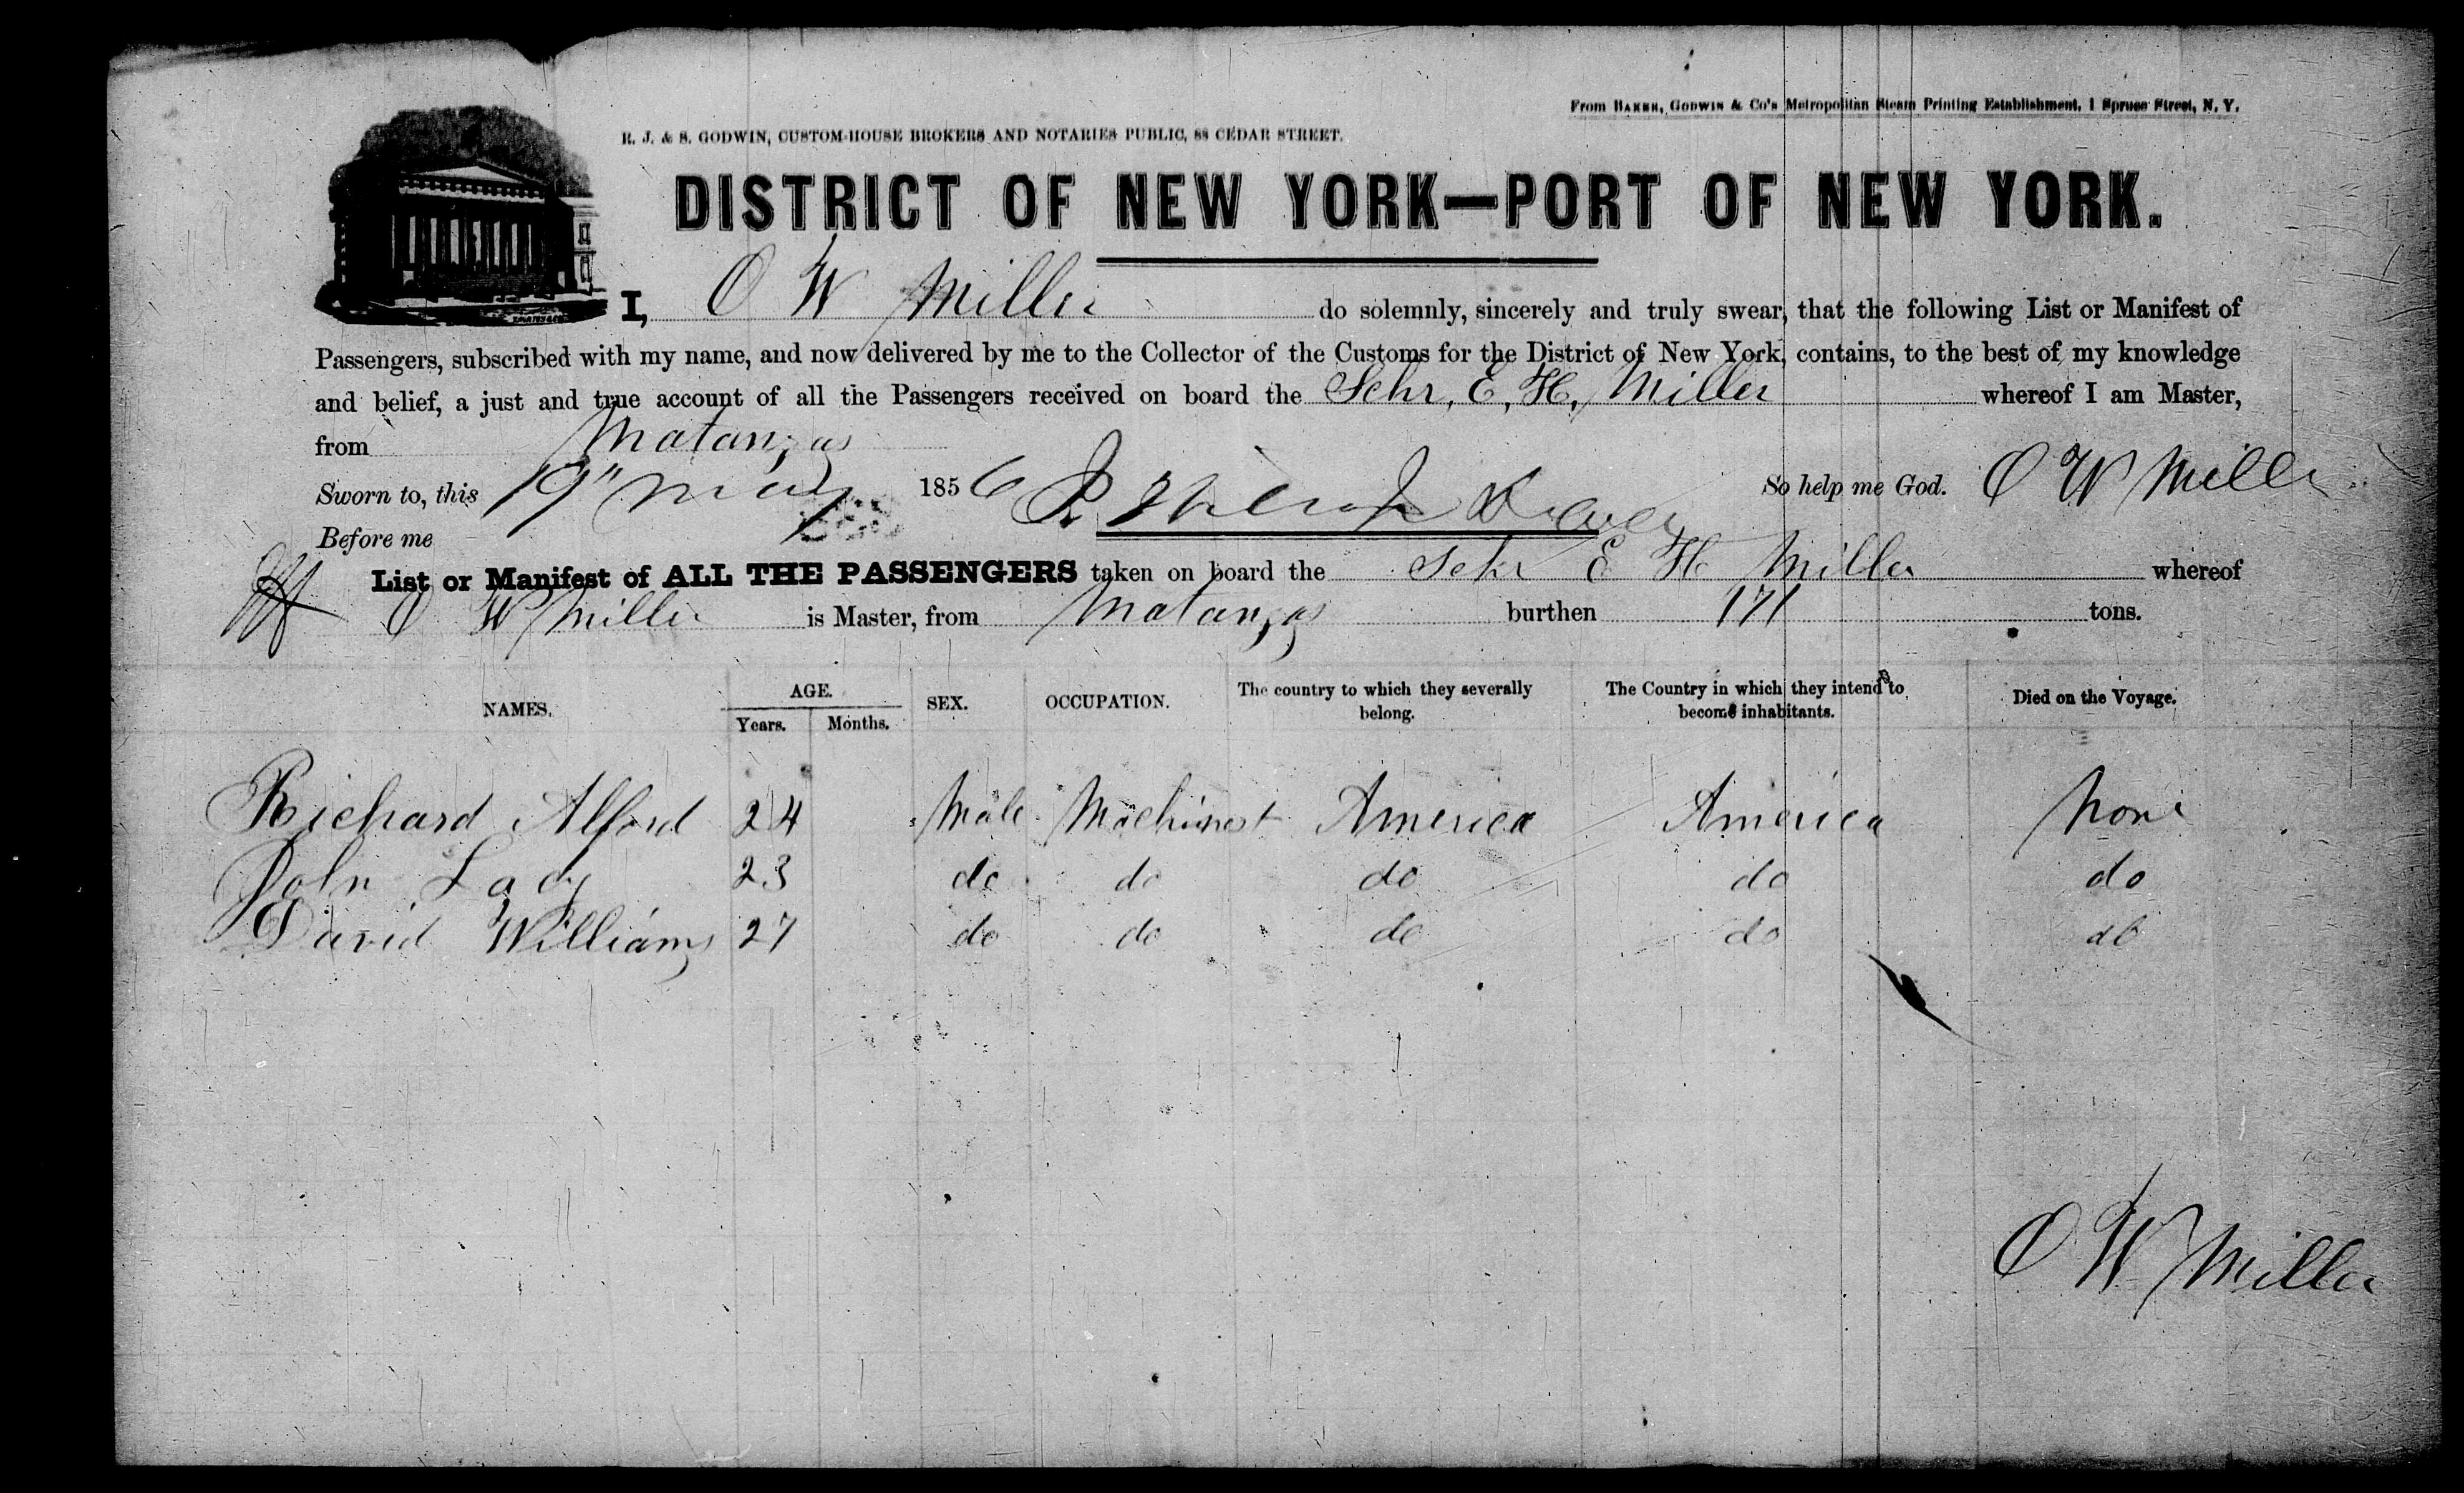 From BAKER, GODWIN & Co's Metropolitan Steam Printing Establishment, 1 Spruce Street, N. Y.
R. J. & S. GODWIN, CUSTOM-HOUSE BROKERS AND NOTARIES PUBLIC, 88 CEDAR STREET.
DISTRICT OF NEW YORK—PORT OF NEW YORK.
I, O W Miller do solemnly, sincerely and truly swear, that the following List or Manifest of
Passengers, subscribed with my name, and now delivered by me to the Collector of the Customs for the District of New York, contains, to the best of my knowledge
and belief, a just and true account of all the Passengers received on board the Schr, E, H, Miller whereof I am Master,
from Matanzas
Sworn to, this 19" May 1856 So help me God. O W Miller
Before me
List or Manifest of ALL THE PASSENGERS taken on board the Schr E H Miller whereof
O W Miller is Master, from Matanzas burthen 171 tons.
NAMES. AGE. Years. Months. SEX. OCCUPATION. The country to which they severally belong. The Country in which they intend to become inhabitants. Died on the Voyage.
Richard Alford 24 Male Machinest America America None
John Lady 23 do do do do do
David Williams 27 do do do do do
O W Miller